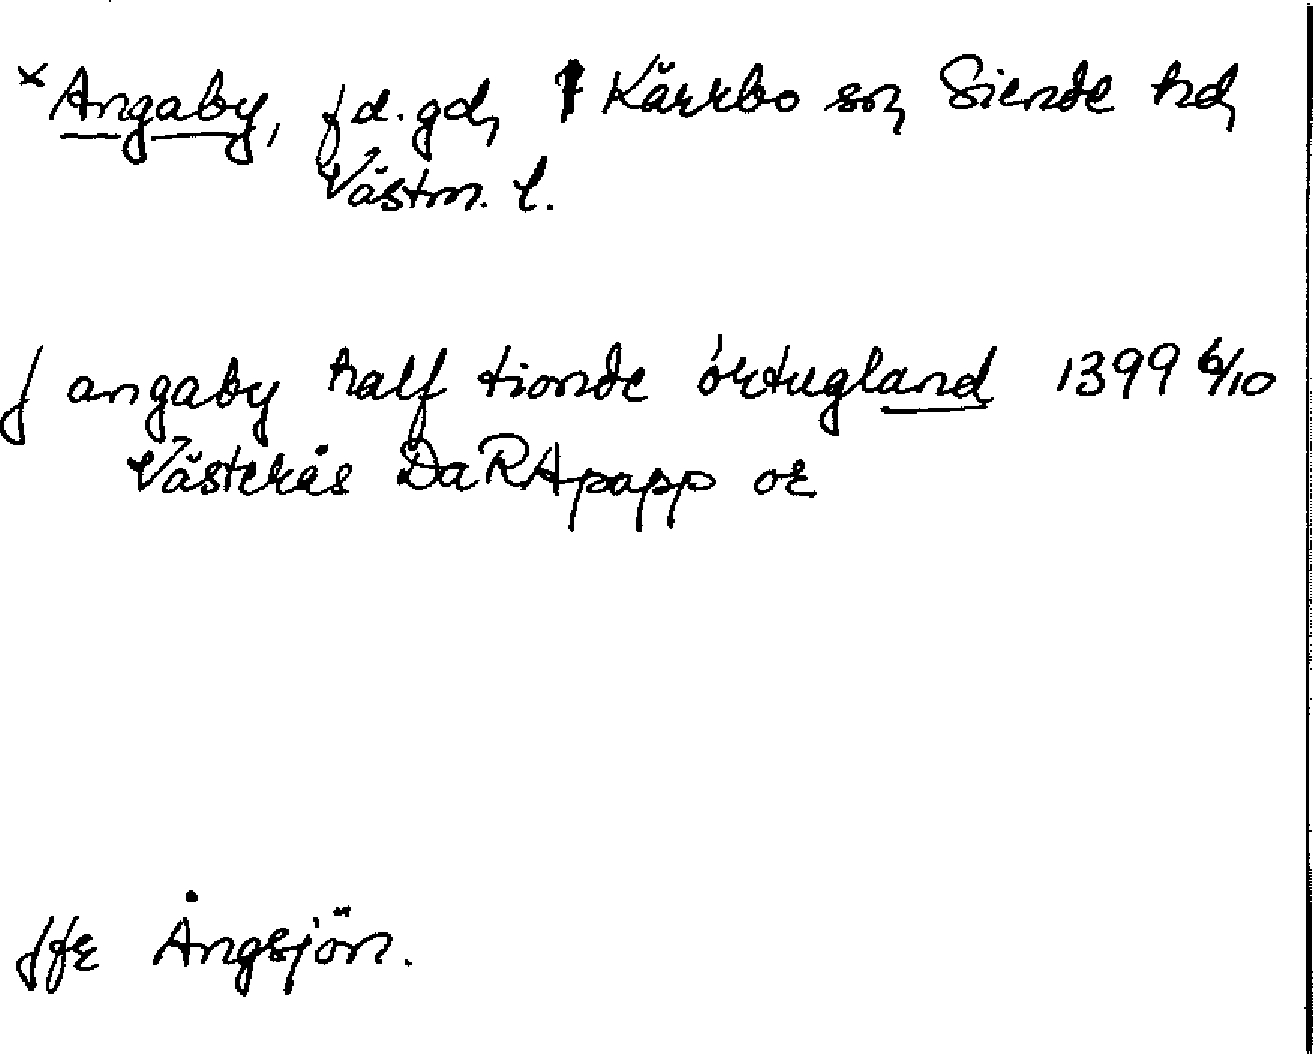 ×Angaby, f d. gd, Kärrbo sn, Siende hd,
Västm. l.
J angaby half tionde örtugland 1399 6/10
Västerås DaRApapp or
Jfr Ångsjön.